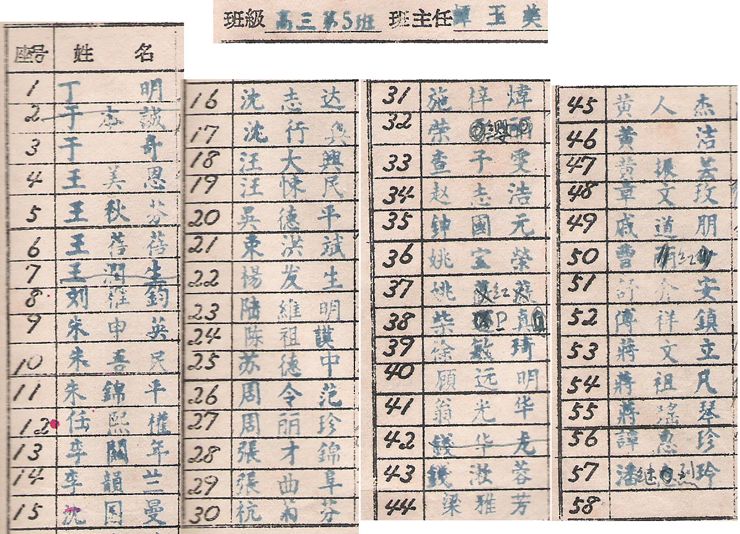 班級 高三第5班 班主任 譚玉美
座号 姓名
1 丁明
2 于志誠
3 于奇
4 王美恩
5 王秋芬
6 王蓓蓓
7 王潤生
8 刘維鈞
9 朱申英
10 朱吾民
11 朱錦平
12 任熙權
13 李關年
14 李韻兰
15 沈因曼
16 沈志达
17 沈行
18 汪大興
19 汪悚民
20 吳德平
21 束洪斌
22 楊发生
23 陆維明
24 陈祖謨
25 苏德中
26 周令范
27 周丽珍
28 張才錦
29 張曲阜
30 杭菊芬
31 施梓煒
32 荣
33 查子雯
34 赵志浩
35 鈡國元
36 姚宝榮
37 姚
38 柴真
39 徐敏琦
40 顾远明
41 翁光华
42 錢华虎
43 錢澂蓉
44 梁雅芳
45 黄人杰
46 黄洁
47 黄振芸
48 章文玫
49 戚道朋
50 曹
51 舒介安
52 傅祥鎮
53 蔣文立
54 蔣祖凡
55 蔣瑤琴
56 譚惠珍
57 潘玲
58